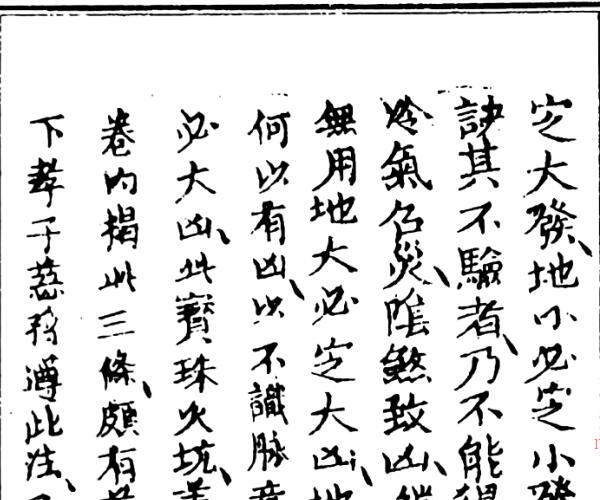 定大發、地小必定小發
訣其不驗者、乃不能
冷氣召災、陰煞致凶、
無用地大必定大凶、地
何以有凶、以不識脉
必大凶、此寶珠火坑、
卷内揭此三條、頗有
下孝子慈將遵此法、